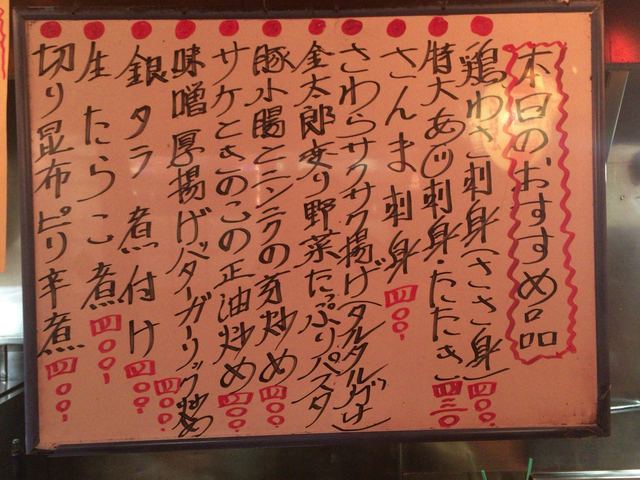 本日のおすすめ品
鶏わさ刺身(ささ身)四〇〇
特大あじ刺身・たたき 四三〇
さんま刺身 四〇〇
さわらサクサク揚げ(タルタルがけ)
金太郎変り野菜たっぷりパスタ
豚小腸とニンニクの芽炒め 四〇〇
サケときのこの正油炒め 四〇〇
味噌厚揚げバターガーリック炒め 四〇〇
銀タラ煮付け 四〇〇
生たらこ煮 四〇〇
切り昆布ピリ辛煮 四〇〇